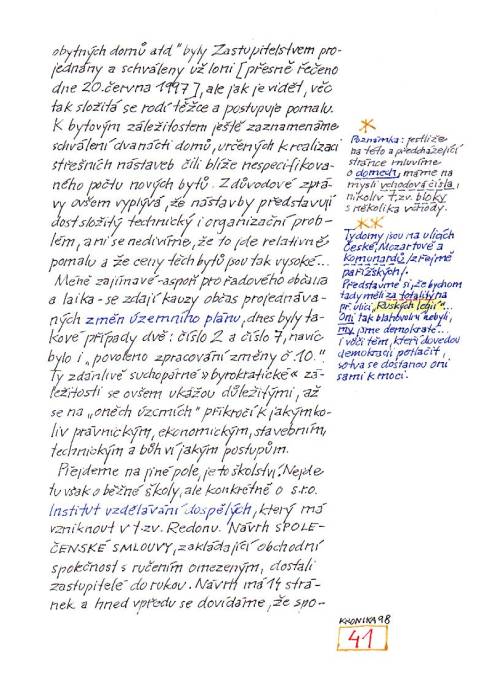 obytných domů atd" byly Zastupitelstvem pro-
jednány a schváleny už loni [přesně řečeno
dne 20.června 1997], ale jak je vidět, věc
tak složitá se rodí těžce a postupuje pomalu.
K bytovým záležitostem ještě zaznamenáme
schválení dvanácti domů, určených k realizaci
střešních nástaveb čili blíže nespecifikova-
ného počtu nových bytů. Z důvodové zprá-
vy ovšem vyplývá, že nástavby představují
dost složitý technický i organizační prob-
lém, a ni se nedivíme, že to jde relativně
pomalu a že ceny těch bytů jsou tak vysoké...
Méně zajímavé-aspoň pro řadového občana
a laika-se zdají kauzy občas projednáva-
ných změn územního plánu, dnes byly ta-
kové případy dvě: číslo 2 a číslo 7, navíc
bylo i „povoleno zpracování změny č.10."
Ty zdánlivě suchopárné »byrokratické« zá-
ležitosti se ovšem ukážou důležitými, až
se na „oněch územích" přikročí k jakýmko-
liv právnickým, ekonomickým, stavebním,
technickým a bůh ví jakým postupům.
Přejdeme na jiné pole, je to školství. Nejde
tu však o běžné školy, ale konkrétně o s.r.o.
Institut vzdělávání dospělých, který má
vzniknout v t.zv. Redonu. Návrh SPOLE-
ČENSKÉ SMLOUVY, zakládající obchodní
společnost s ručením omezeným, dostali
zastupitelé do rukou. Návrh má 14 strá-
nek a hned vpředu se dovídáme, že spo-
*
Poznámka: jestliže
na této a předcházející
stránce mluvíme
o domech, máme na
mysli vchodová čísla,
nikoliv t.zv. bloky
s několika vchody.
**
Ty domy jsou na ulicích
České, Mozartově a
Komunardů /zřejmě
pařížských/.
Představme si, že bychom
tady měli za totality na
př. ulici „Ruských legií"...
Oni tak blahovolní nebyli,
my jsme demokraté...
i vůči těm, kteří dovedou
demokracii potlačit,
sotva se dostanou oni
sami k moci.
KRONIKA 98
41